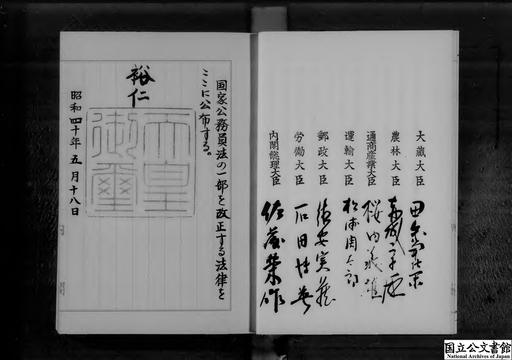 大蔵大臣 田中角榮
農林大臣 赤城宗徳
通商産業大臣 桜内義雄
運輸大臣 松浦周太郎
郵政大臣 徳安実蔵
労働大臣 石田博英
内閣総理大臣 佐藤榮作
国家公務員法の一部を改正する法律を
ここに公布する。
裕仁
天皇
御璽
昭和四十年五月十八日
国立公文書館
National Archives of Japan